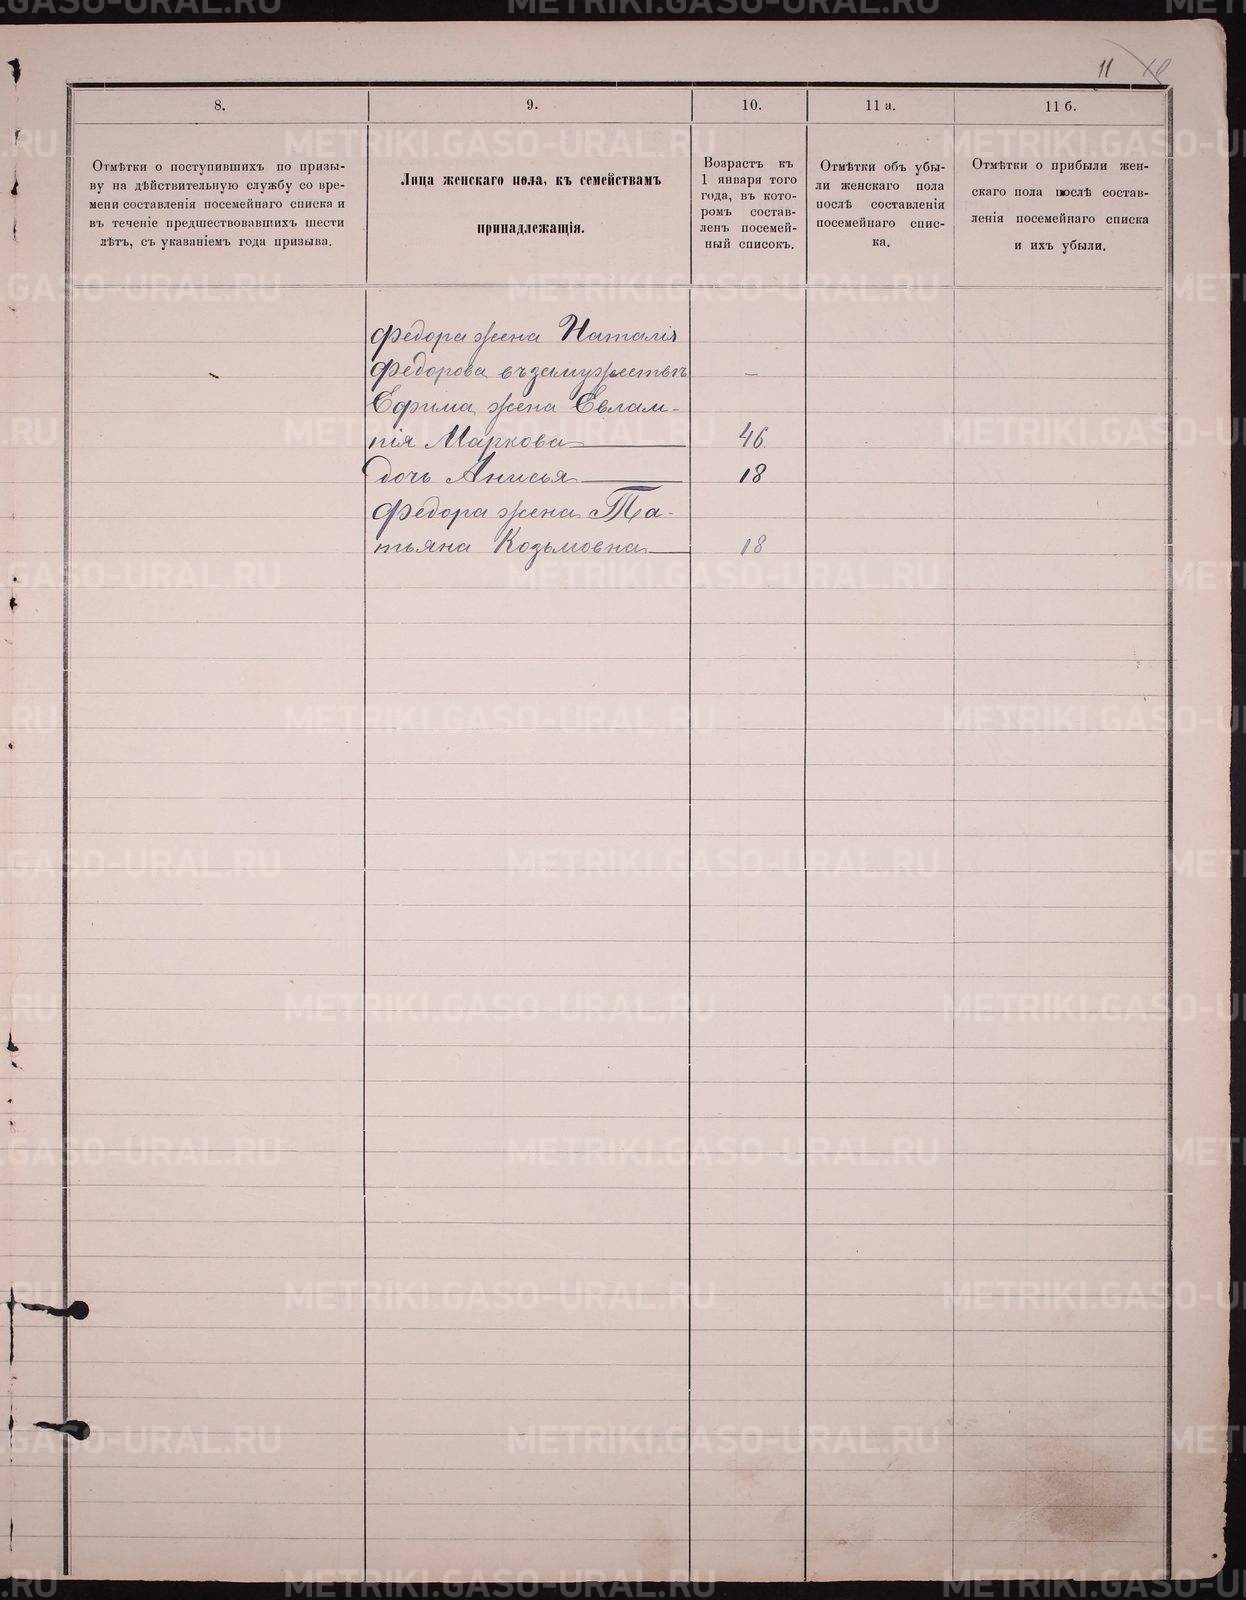 11
8.
9.
10.
11 а.
11 б.
Отмѣтки о поступившихъ по призы-
ву на дѣйствительную службу со вре-
мени составленія посемейнаго списка и
въ теченіе предшествовавшихъ шести
лѣтъ, съ указаніемъ года призыва.
Лица женскаго пола, къ семействамъ
принадлежащія.
Возрастъ къ
1 января того
года, въ кото-
ромъ состав-
ленъ посемей-
ный списокъ.
Отмѣтки объ убы-
ли женскаго пола
послѣ составленія
посемейнаго спис-
ка.
Отмѣтки о прибыли жен-
скаго пола послѣ состав-
ленія посемейнаго списка
и ихъ убыли.
Федора жена Наталія
Федорова въ замужествѣ —
Ефима жена Евлам-
пія Маркова 46.
дочь Анисья 18
Федора жена Та-
тьяна Козьмовна 18
METRIKI.GASO-URAL.RU